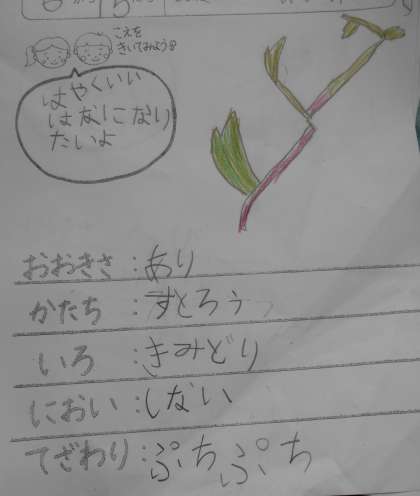 こえを
きいてみよう
はやくいい
はなになり
たいよ
おおきさ：あり
かたち：すとろう
いろ：きみどり
におい：しない
てざわり：ぷちぷち